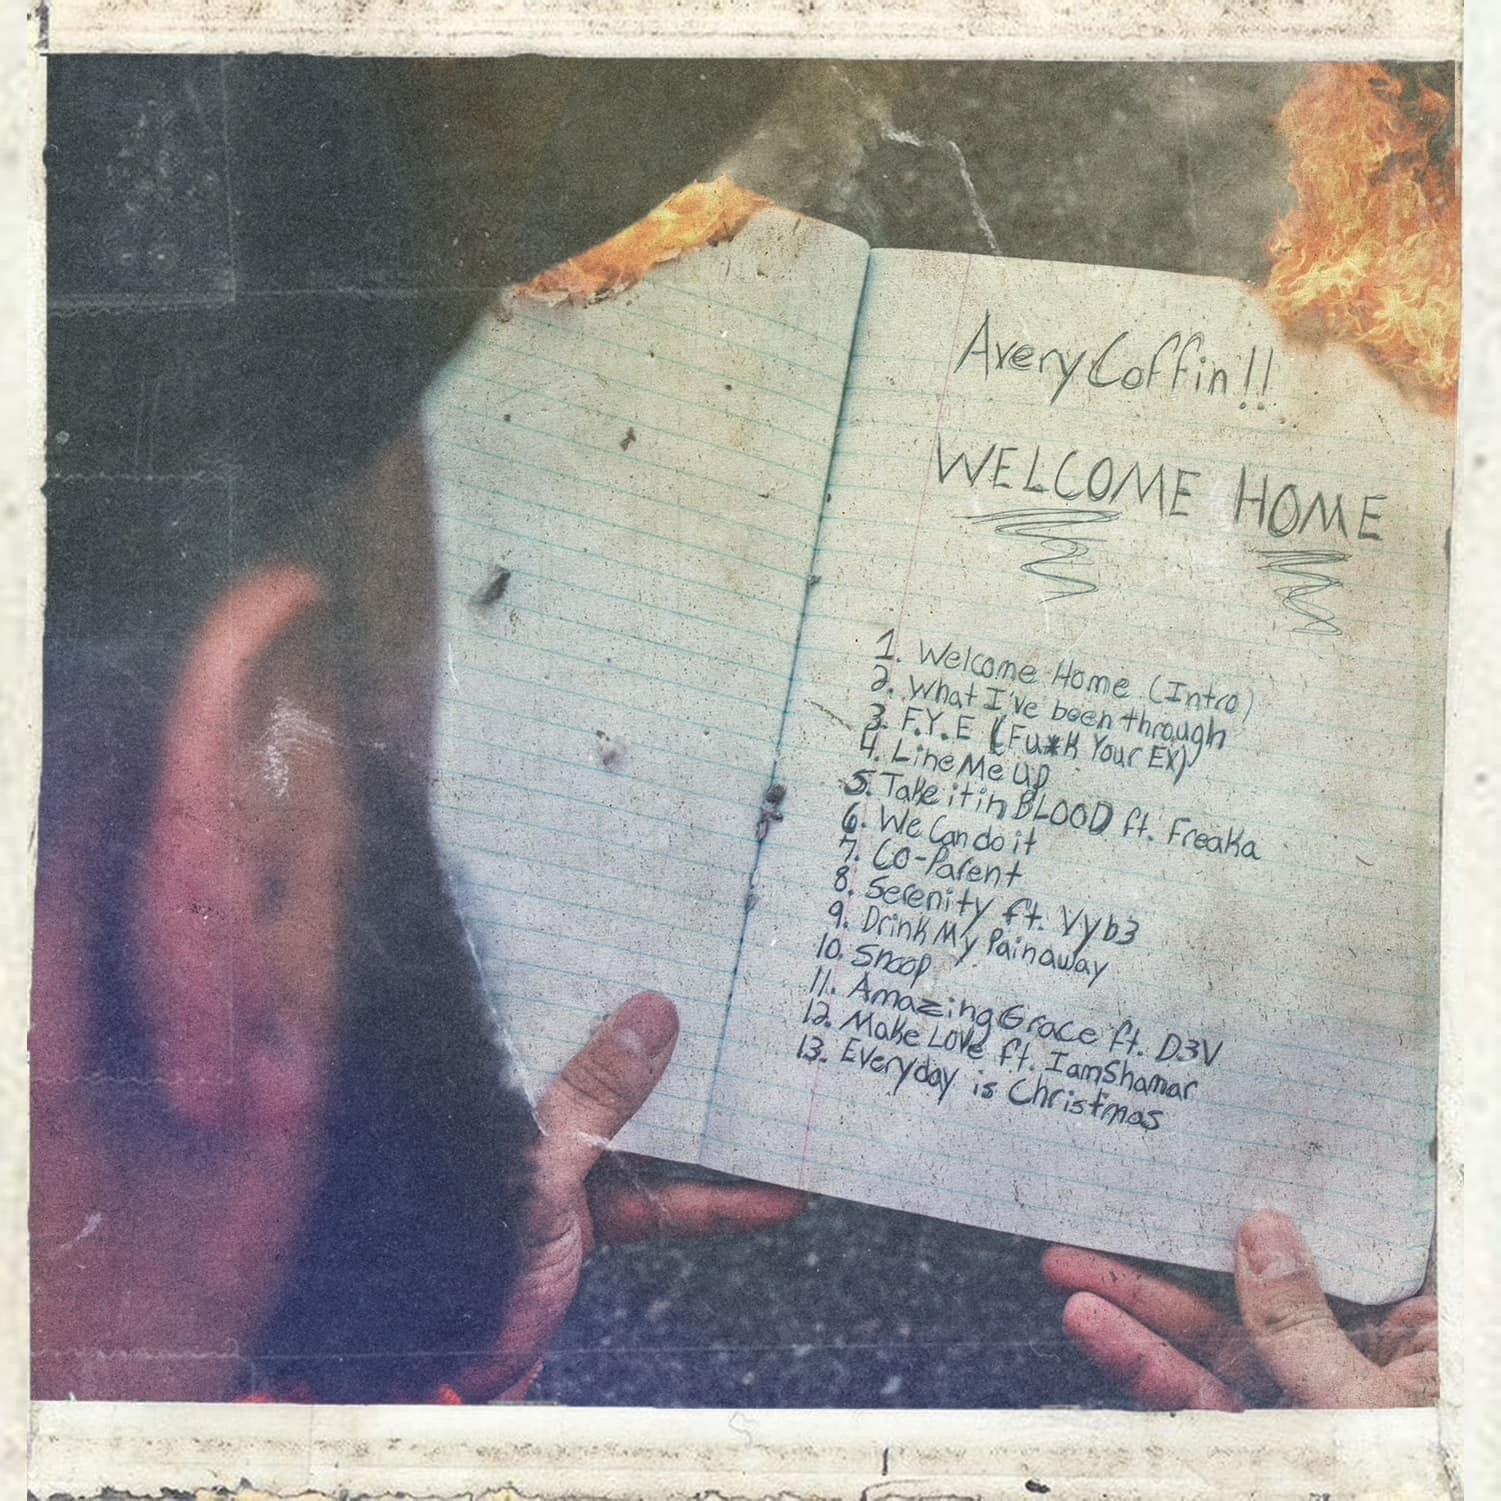 Avery Coffin!!
WELCOME HOME
1. Welcome Home (Intro)
2. What I've been through
3. F.Y.E (Fu*k Your Ex)
4. Line Me Up
5. Take it in BLOOD ft. Freaka
6. We Can do it
7. Co-Parent
8. Serenity ft. Vyb3
9. Drink My Pain away
10. Snoop
11. Amazing Grace ft. D3V
12. Make Love ft. IamShamar
13. Everyday is Christmas